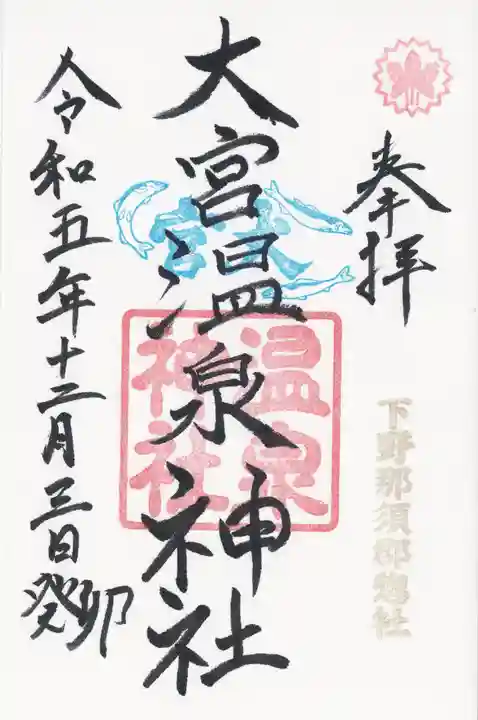 奉拝
下野那須郡惣社
大宮温泉神社
温泉
神社
令和五年十二月三日癸卯